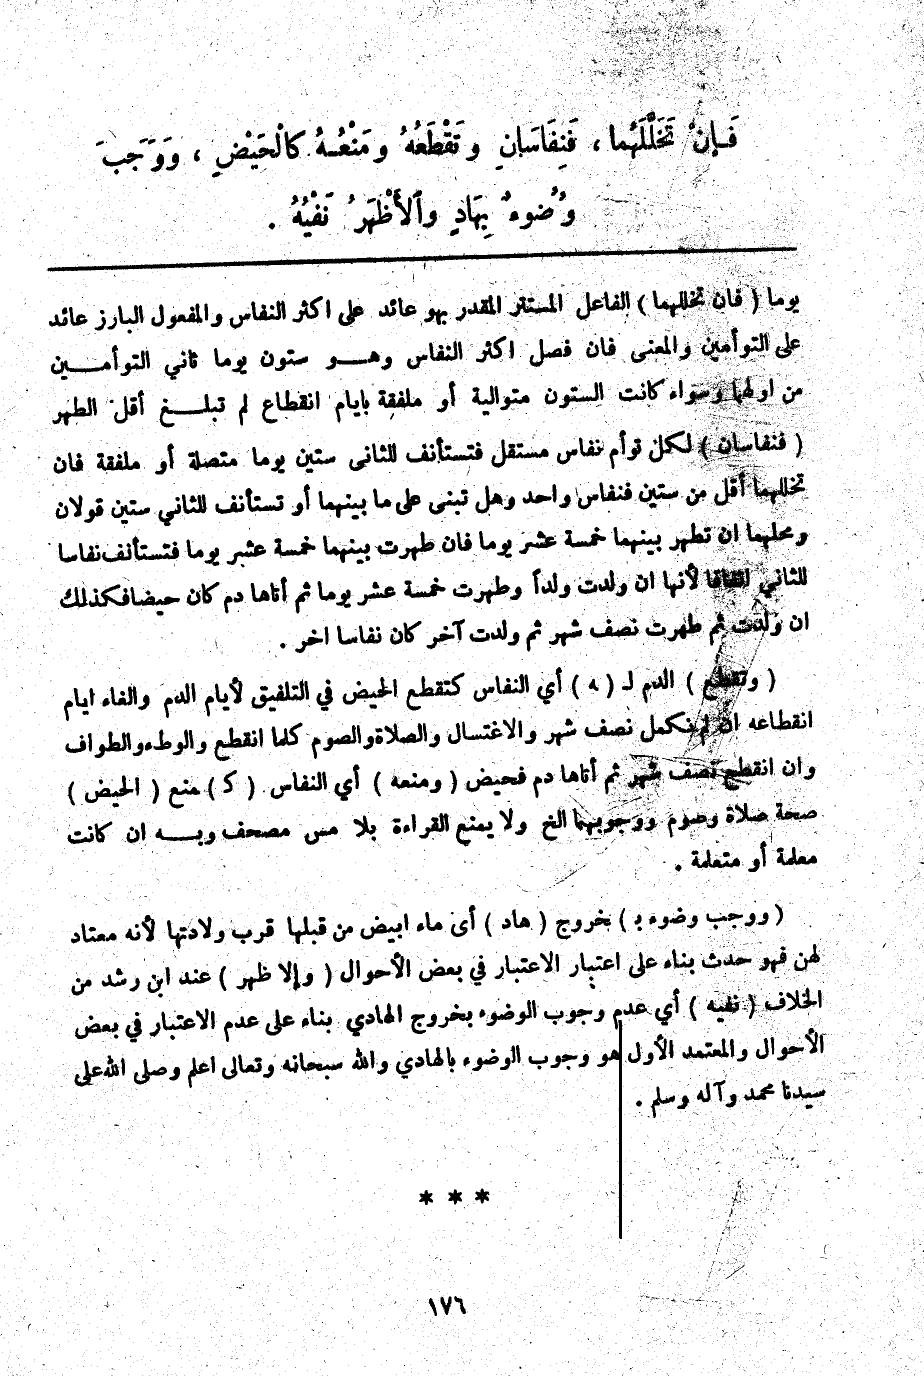 فَإِنْ تَخَلَّلَهُما ، فَنِفَاسَانِ وتَقْطَعُهُ ومَنْعُهُ كالْحَيْضِ ، وَوَجَبَ
وُضوءٌ بِهَادٍ والأَظْهَرُ نَفْيُهُ .
يوما ( فان تخللهما ) الفاعل المستتر المقدر بهو عائد على اكثر النفاس والمفعول البارز عائد
على التوأمين والمعنى فان فصل اكثر النفاس وهــو ستون يوما ثاني التوأمــين
من اولهما وسواء كانت الستون متوالية أو ملفقة بايام انقطاع لم تبلــغ أقل الطهر
( فنفاسان ) لكل توأم نفاس مستقل فتستأنف للثانى ستين يوما متصلة أو ملفقة فان
تخللهما أقل من ستين فنفاس واحد وهل تبنى على ما بينهما أو تستأنف للثاني ستين قولان
ومحلهما ان تطهر بينهما خمسة عشر يوما فان طهرت بينهما خمسة عشر يوما فتستأنف نفاسا
للثاني اتفاقا لأنها ان ولدت ولداً وطهرت خمسة عشر يوما ثم أتاها دم كان حيضا فكذلك
ان ولدت ثم طهرت نصف شهر ثم ولدت آخر كان نفاسا اخر .
( وتقطع ) الدم لـ ( ه ) أي النفاس كتقطع الحيض في التلفيق لأيام الدم والغاء ايام
انقطاعه ان لم تكمل نصف شهر والاغتسال والصلاة والصوم كلما انقطع والوطء والطواف
وان انقطع نصف شهر ثم أتاها دم فحيض ( ومنعه ) أي النفاس ( كـ ) منع ( الحيض )
صحة صلاة وصوم ووجوبهما الخ ولا يمنع القراءة بلا مس مصحف وبــه ان كانت
معلمة أو متعلمة .
( ووجب وضوء بـ ) خروج ( هاد ) أى ماء ابيض من قبلها قرب ولادتها لأنه معتاد
لهن فهو حدث بناء على اعتبار الاعتبار في بعض الأحوال ( وإلا ظهر ) عند ابن رشد من
الخلاف ( نفيه ) أي عدم وجوب الوضوء بخروج الهادي بناء على عدم الاعتبار في بعض
الأحوال والمعتمد الأول هو وجوب الوضوء بالهادي والله سبحانه وتعالى اعلم وصلى الله على
سيدنا محمد وآله وسلم .
* * *
١٧٦